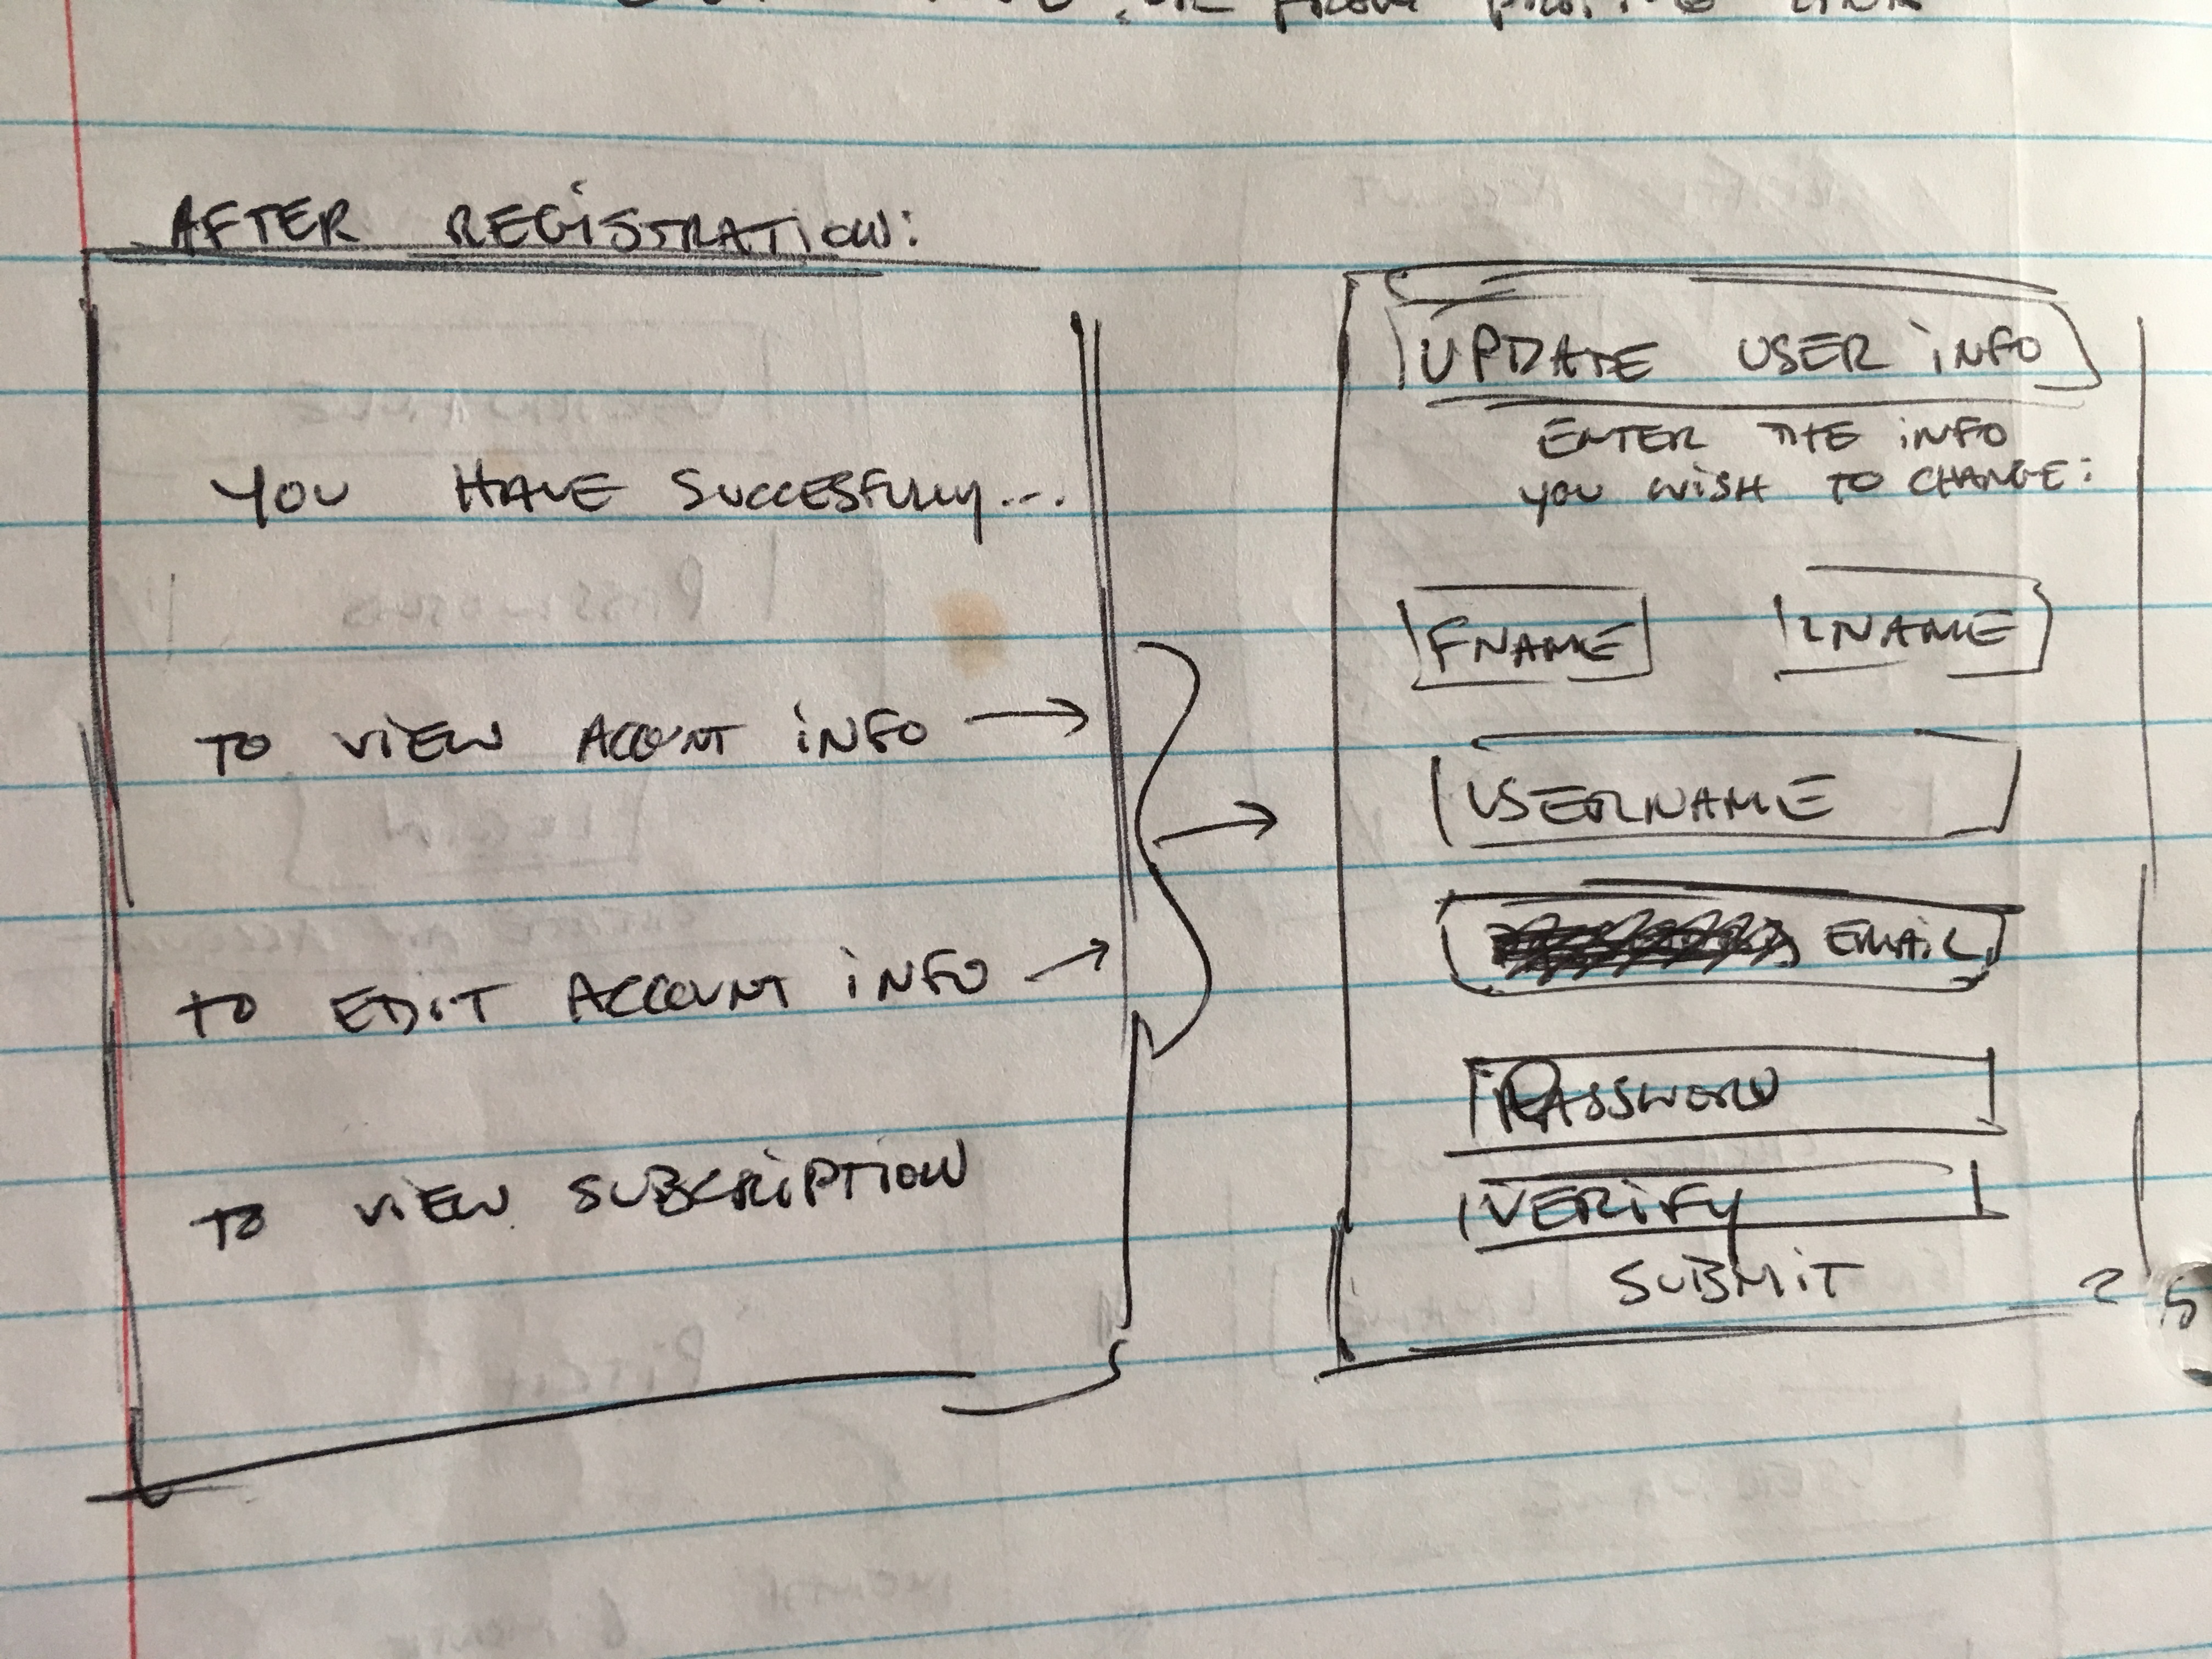 FROM LINK
AFTER REGISTRATION:
YOU HAVE SUCCESFULLY...
TO VIEW ACCOUNT INFO →
TO EDIT ACCOUNT INFO →
TO VIEW SUBCRIPTION
UPDATE USER INFO
ENTER THE INFO
YOU WISH TO CHANGE:
FNAME LNAME
USERNAME
EMAIL
PASSWORD
VERIFY
SUBMIT